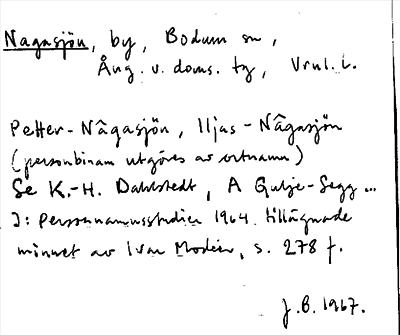 Nagasjön, by, Bodum sn,
Ång. v. doms. tg, Vrul. l.
Petter-Nâgasjön, Iljas-Nâgasjön
(personbinamn utgöres av ortnamn)
Se K.-H. Dahlstedt, A Gulje-Segg...
I: Personnamnsstudier 1964 tillägnade
minnet av Ivar Modéer, s. 278 f.
J.B. 1967.